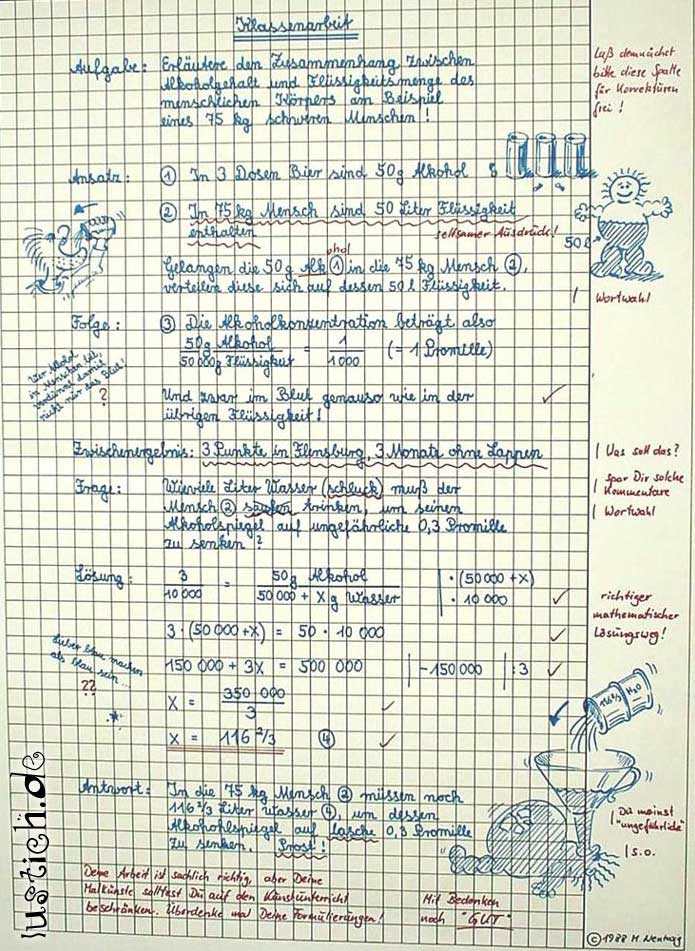 Klassenarbeit
Aufgabe: Erläutere den Zusammenhang zwischen
Alkoholgehalt und Flüssigkeitsmenge des
menschlichen Körpers am Beispiel
eines 75 kg schweren Menschen!
Laß demnächst
bitte diese Spalte
für Korrekturen
frei!
Ansatz: ① In 3 Dosen Bier sind 50g Alkohol
② In 75 kg Mensch sind 50 Liter Flüssigkeit
enthalten
seltsamer Ausdruck!
50 l
ohol
Gelangen die 50g Alk ① in die 75 kg Mensch ②,
verteilen diese sich auf dessen 50 l Flüssigkeit.
| Wortwahl
Folge: ③ Die Alkoholkonzentration beträgt also
50g Alkohol / 50 000g Flüssigkeit = 1 / 1000 (= 1 Promille)
Wer Alkohol
in Menschen tut,
verdünnt damit
nicht nur das Blut!
?
Und zwar im Blut genauso wie in der
übrigen Flüssigkeit! ✓
Zwischenergebnis: 3 Punkte in Flensburg, 3 Monate ohne Lappen
| Was soll das?
Frage: Wieviele Liter Wasser (schluck) muß der
Mensch ② saufen trinken, um seinen
Alkoholspiegel auf ungefährliche 0,3 Promille
zu senken?
| Spar Dir solche
Kommentare
| Wortwahl
Lösung: 3 / 10 000 = 50g Alkohol / 50 000 + X g Wasser | · (50 000 + X)
· 10 000 ✓
richtiger
mathematischer
Lösungsweg!
3 · (50 000 + X) = 50 · 10 000 ✓
150 000 + 3X = 500 000 | -150 000 | : 3 ✓
X = 350 000 / 3 ✓
X = 116 2/3 ④ ✓
Lieber blau machen
als blau sein...
??
116 2/3 H₂O
Antwort: In die 75 kg Mensch ② müssen noch
116 2/3 Liter Wasser ④, um dessen
Alkoholspiegel auf lasche 0,3 Promille
zu senken. Prost!
| Du meinst
"ungefährliche"
| s.o.
Deine Arbeit ist sachlich richtig, aber Deine
Malkünste solltest Du auf den Kunstunterricht
beschränken. Überdenke mal Deine Formulierungen!
Mit Bedenken
noch "GUT"
© 1988 M.
lustich.de